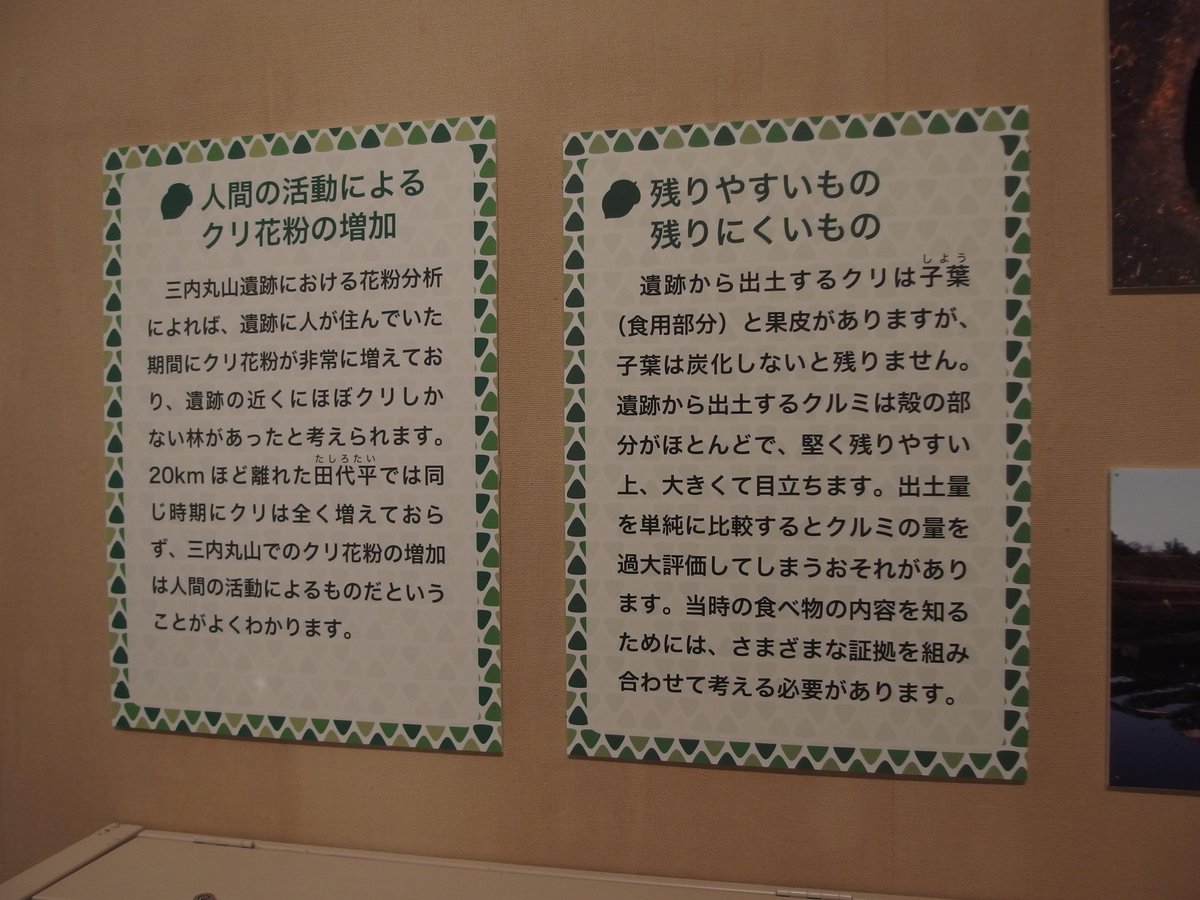 人間の活動による
クリ花粉の増加
三内丸山遺跡における花粉分析
によれば、遺跡に人が住んでいた
期間にクリ花粉が非常に増えてお
り、遺跡の近くにほぼクリしか
ない林があったと考えられます。
たしろたい
20km ほど離れた田代平では同
じ時期にクリは全く増えておら
ず、三内丸山でのクリ花粉の増加
は人間の活動によるものだという
ことがよくわかります。
残りやすいもの
残りにくいもの
しよう
遺跡から出土するクリは子葉
（食用部分）と果皮がありますが、
子葉は炭化しないと残りません。
遺跡から出土するクルミは殻の部
分がほとんどで、堅く残りやすい
上、大きくて目立ちます。出土量
を単純に比較するとクルミの量を
過大評価してしまうおそれがあり
ます。当時の食べ物の内容を知る
ためには、さまざまな証拠を組み
合わせて考える必要があります。